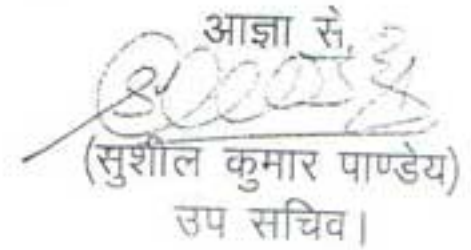 आज्ञा से,
(सुशील कुमार पाण्डेय)
उप सचिव।